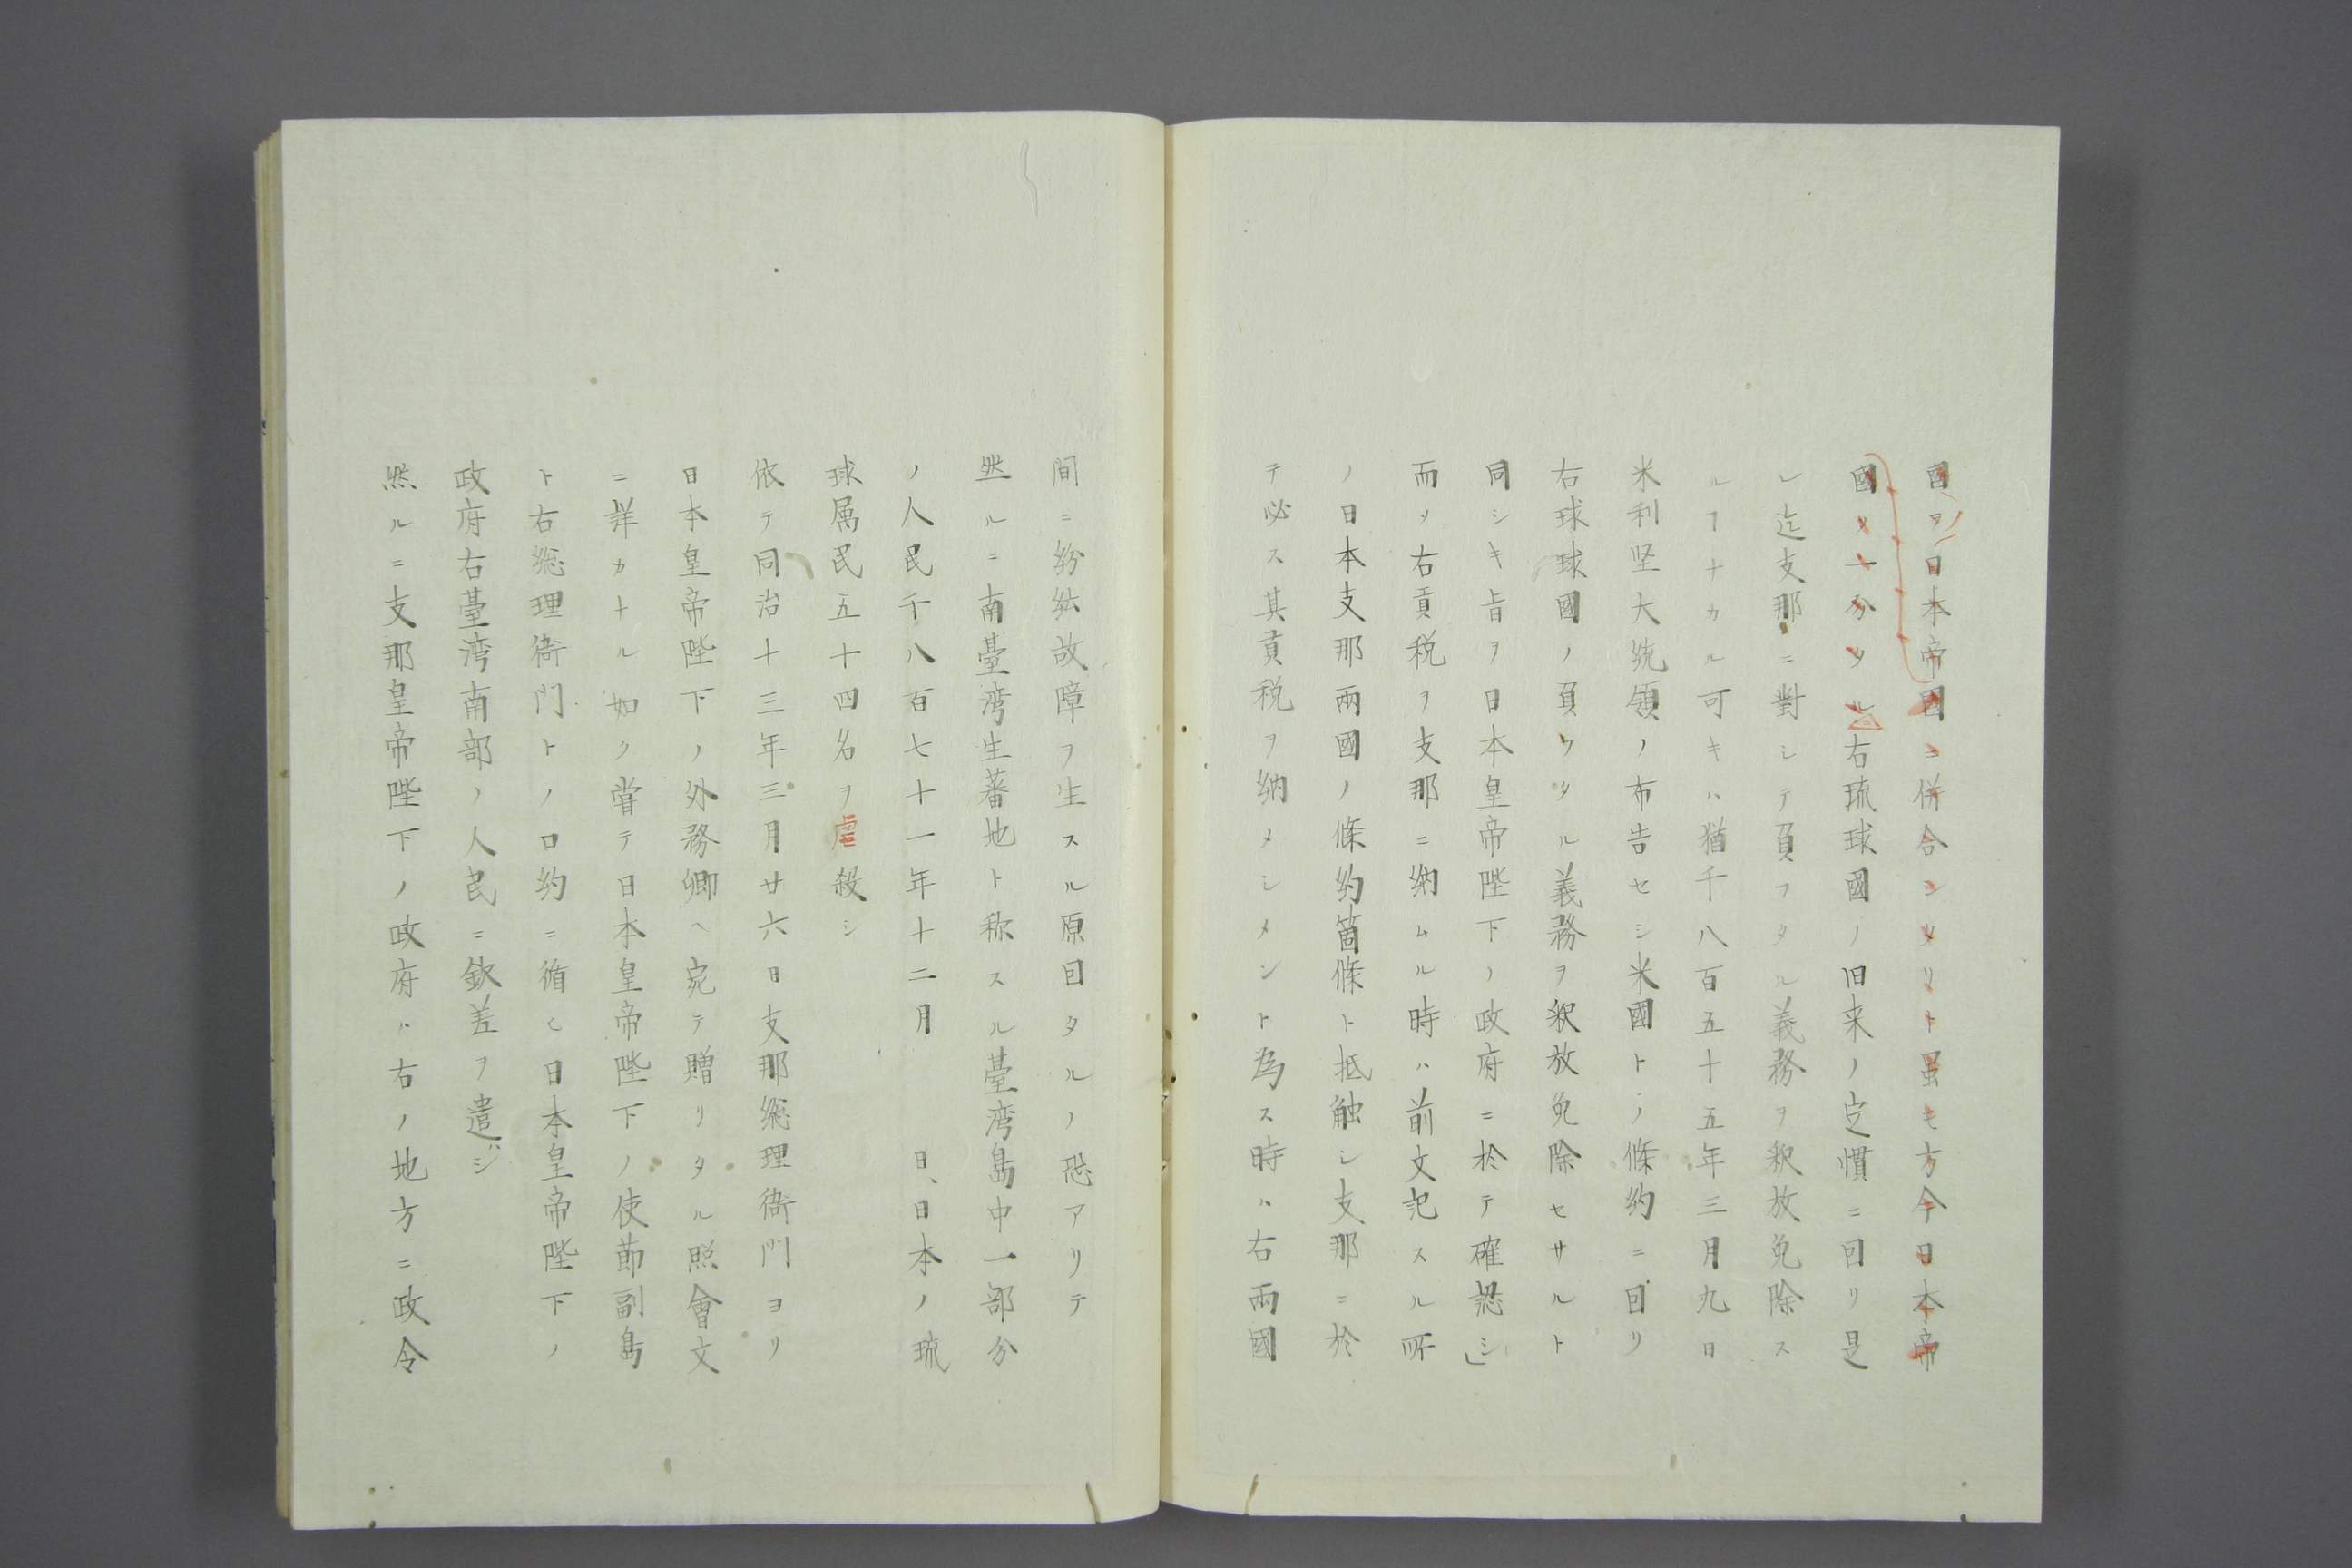 國ヲ日本帝國ニ併合シタリト虽モ方今日本帝
國ノ一分タル右琉球國ノ旧来ノ定慣ニ回リ是
レ迄支那ニ對シテ負フタル義務ヲ釈放免除ス
ルヿナカル可キハ猶千八百五十五年三月九日
米利堅大統領ノ布告セシ米國トノ條約ニ回リ
右球球國ノ負フタル義務ヲ釈放免除セサルト
同シキ旨ヲ日本皇帝陛下ノ政府ニ於テ確認シ」
而ノ右貢税ヲ支那ニ納ムル時ハ前文記スル所
ノ日本支那兩國ノ條約箇條ト抵触シ支那ニ於
テ必ス其貢税ヲ納メシメント為ス時ハ右兩國
間ニ紛紜故障ヲ生スル原回タルノ恐アリテ
然ルニ南臺湾生蕃地ト称スル臺湾島中一部分
ノ人民千八百七十一年十二月　　日、日本ノ琉
球属民五十四名ヲ虐殺シ
依テ同治十三年三月廿六日支那総理衙門ヨリ
日本皇帝陛下ノ外務卿ヘ宛テ贈リタル照會文
ニ詳カナル如ク嘗テ日本皇帝陛下ノ使節副島
ト右総理衙門トノ口約ニ循ヒ日本皇帝陛下ノ
政府右臺湾南部ノ人民ニ欽差ヲ遣ハシ
然ルニ支那皇帝陛下ノ政府ハ右ノ地方ニ政令